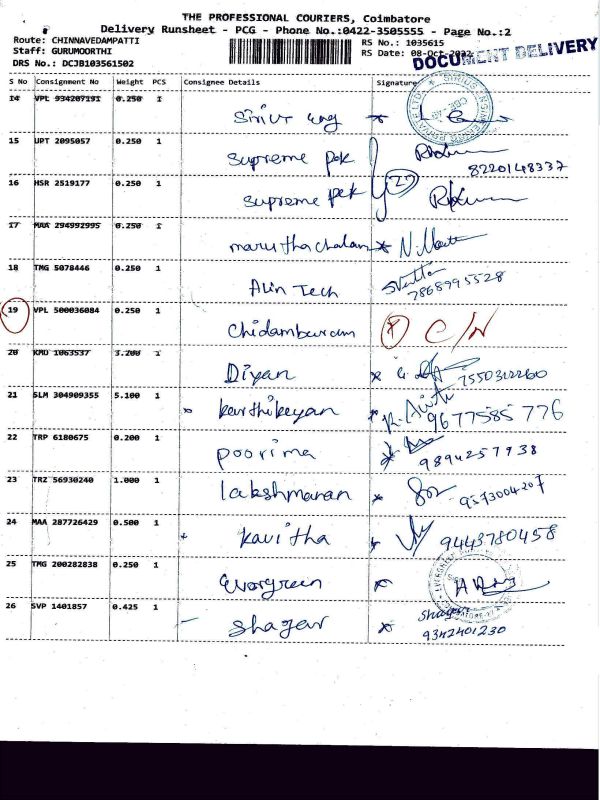 THE PROFESSIONAL COURIERS, Coimbatore
Delivery Runsheet - PCG - Phone No.:0422-3505555 - Page No.:2
Route: CHINNAVEDAMPATTI
RS No.: 1035615
Staff: GURUMOORTHI
RS Date: 08-Oct-2022
DOCUMENT DELIVERY
DRS No.: DCJB103561502
S No Consignment No Weight PCS Consignee Details Signature
14 VPL 934207191 0.250 1
15 UPT 2095057 0.250 1 Supreme Pek
8220148337
16 HSR 2519177 0.250 1 Supreme Pek 27
17 MAA 294992995 0.250 1 maruthachalam
18 TMG 5078446 0.250 1 Alin Tech
7868995528
19 VPL 500036084 0.250 1 Chidambaram C/N
20 KMU 1063537 3.200 1 Diyan 7550312260
21 SLM 304909355 5.100 1 Karthikeyan 9677585776
22 TRP 6180675 0.200 1 poorima 9894257938
23 TRZ 56930240 1.000 1 lakshmanan 9573004207
24 MAA 287726429 0.500 1 Kavitha 9443780458
25 TMG 200282838 0.250 1 Evergreen
26 SVP 1401857 0.425 1
9342401230